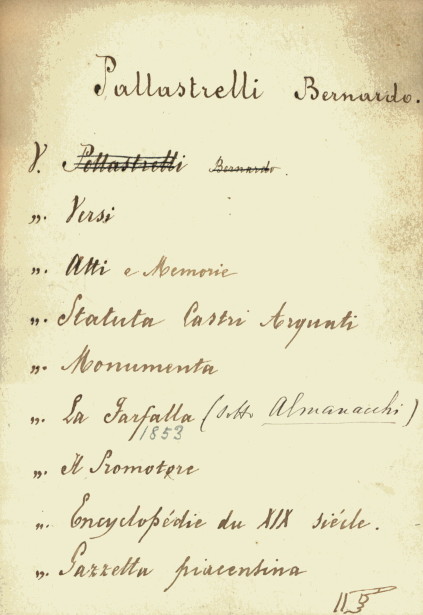 Pallastrelli Bernardo.
V. Pallastrelli Bernardo.
„. Versi
„. Atti e Memorie
„. Statuta Castri Arquati
„. Monumenta
„. La Farfalla (sotto Almanacchi)
1853
„. Il Promotore
„. Encyclopédie du XIX siécle.
„. Gazzetta piacentina